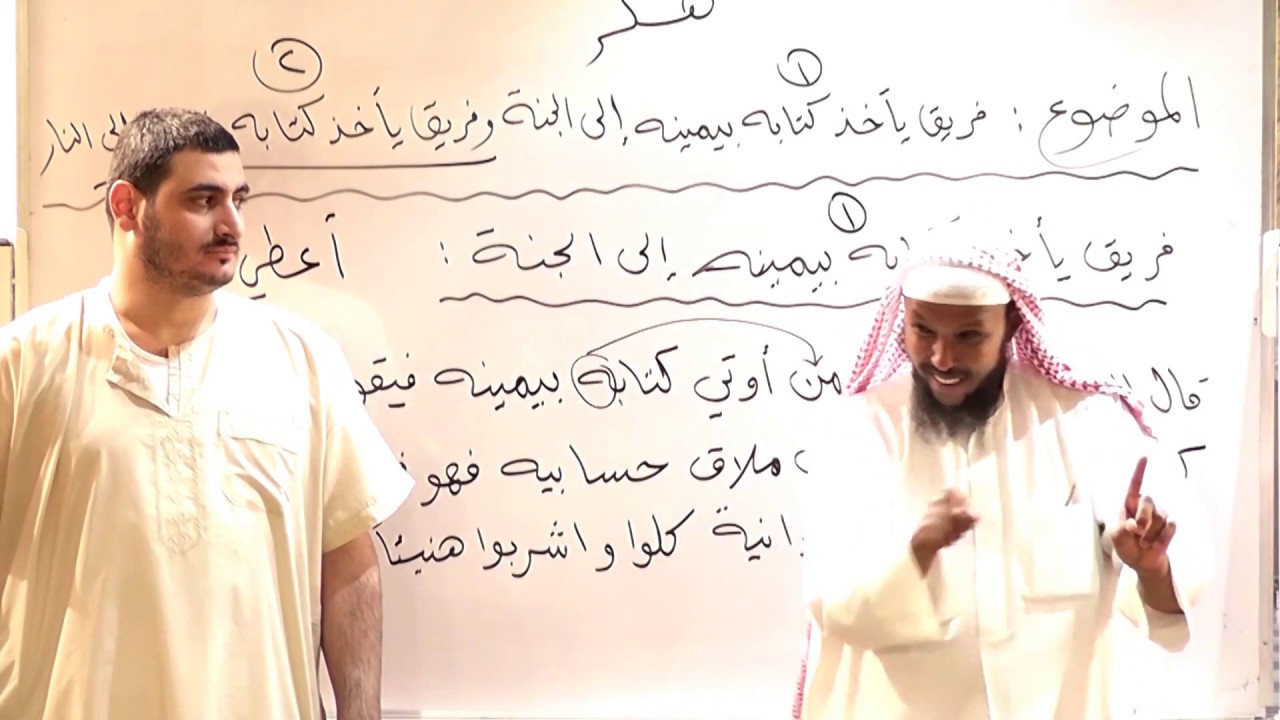 ١ ٢
الموضوع : فريق يأخذ كتابه بيمينه إلى الجنة وفريق يأخذ كتابه إلى النار
١
فريق بيمينه إلى الجنة : أعطي
قال من أوتي كتابه بيمينه
ملاق حسابيه فهو
كلوا واشربوا هنيئا